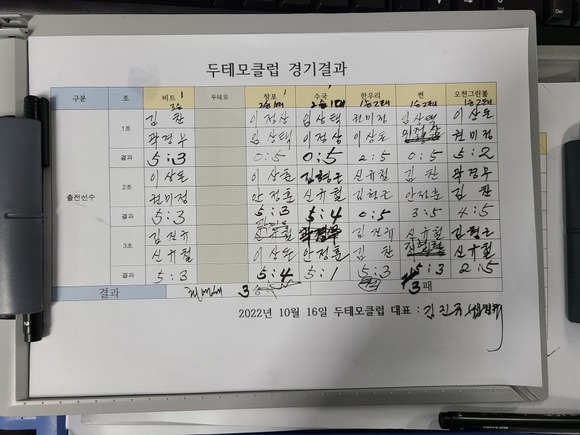 두테모클럽 경기결과
구분 조 비트 두테모 장포 수국 한우리 썬 오천그린볼
3승 2승1패 2승1패 1승2패 1승2패 1승2패
출전선수
1조 김 찬 이정상 임상택 권미정 임상택 이상돈
곽경무 임상택 이정상 이상돈 권미정
결과 5:3 0:5 0:5 2:5 0:5 5:2
2조 이상돈 이상돈 김형근 신규철 김 찬 곽경무
권미정 안정훈 신규철 김형근 안정훈 김 찬
결과 5:3 5:3 5:4 0:5 3:5 4:5
3조 김진규 곽경무 김진규 신규철 김형근
신규철 이상돈 안정훈 김 찬 신규철
결과 5:3 5:4 5:1 5:3 5:3 2:5
결과 3승 3패
2022년 10월 16일 두테모클럽 대표 : 김진규